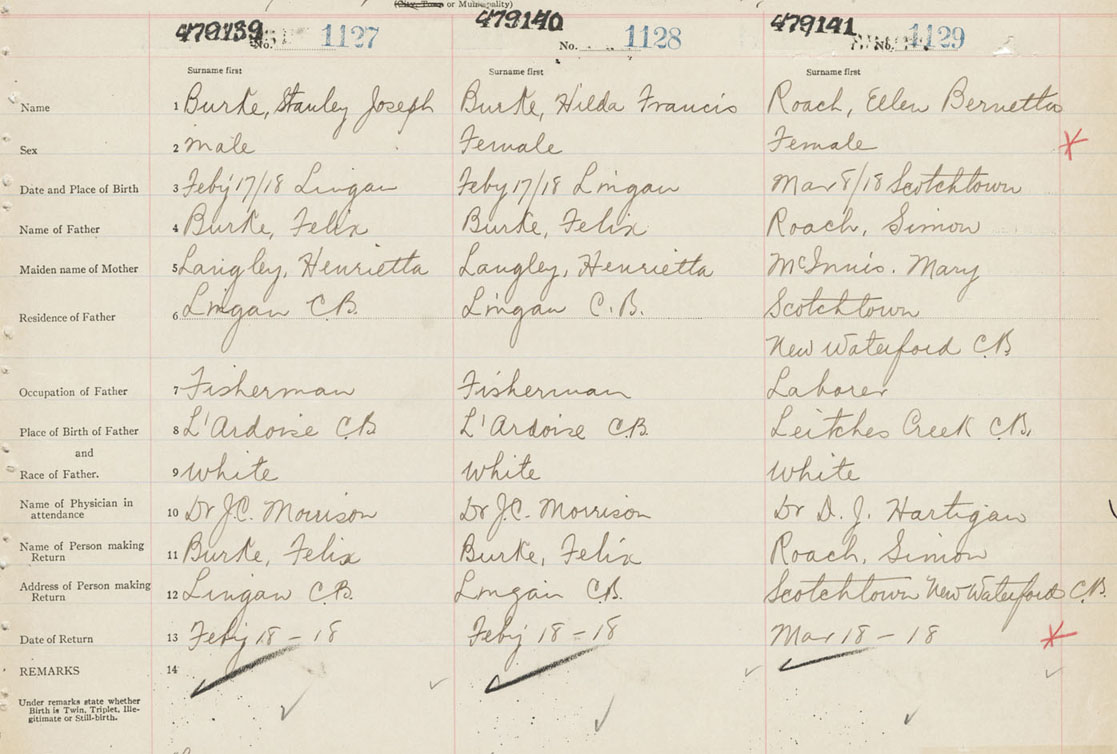 (City, Town or Municipality)
479139 No. 1127 479140 No. 1128 479141 No. 1129
Surname first Surname first Surname first
Name 1 Burke, Stanley Joseph Burke, Hilda Francis Roach, Ellen Bernetta
Sex 2 Male Female Female
Date and Place of Birth 3 Feby 17/18 Lingan Feby 17/18 Lingan Mar 8/18 Scotchtown
Name of Father 4 Burke, Felix Burke, Felix Roach, Simon
Maiden name of Mother 5 Langley, Henrietta Langley, Henrietta McInnis. Mary
Residence of Father 6 Lingan C.B. Lingan C.B. Scotchtown
New Waterford C.B.
Occupation of Father 7 Fisherman Fisherman Laborer
Place of Birth of Father 8 L'Ardoise C.B. L'Ardoise C.B. Leitches Creek C.B.
and
Race of Father. 9 White White White
Name of Physician in attendance 10 Dr J.C. Morrison Dr J.C. Morrison Dr D. J. Hartigan
Name of Person making Return 11 Burke, Felix Burke, Felix Roach, Simon
Address of Person making Return 12 Lingan C.B. Lingan C.B. Scotchtown New Waterford C.B.
Date of Return 13 Feby 18 - 18 Feby 18 - 18 Mar 18 - 18
REMARKS 14
Under remarks state whether
Birth is Twin, Triplet, Ille-
gitimate or Still-birth.